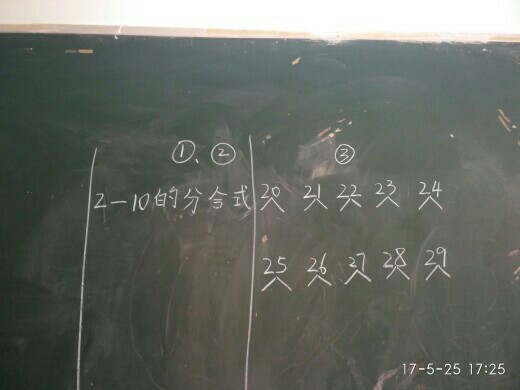 ①、② ③
2—10的分合式 20 21 22 23 24
25 26 27 28 29
17-5-25 17:25